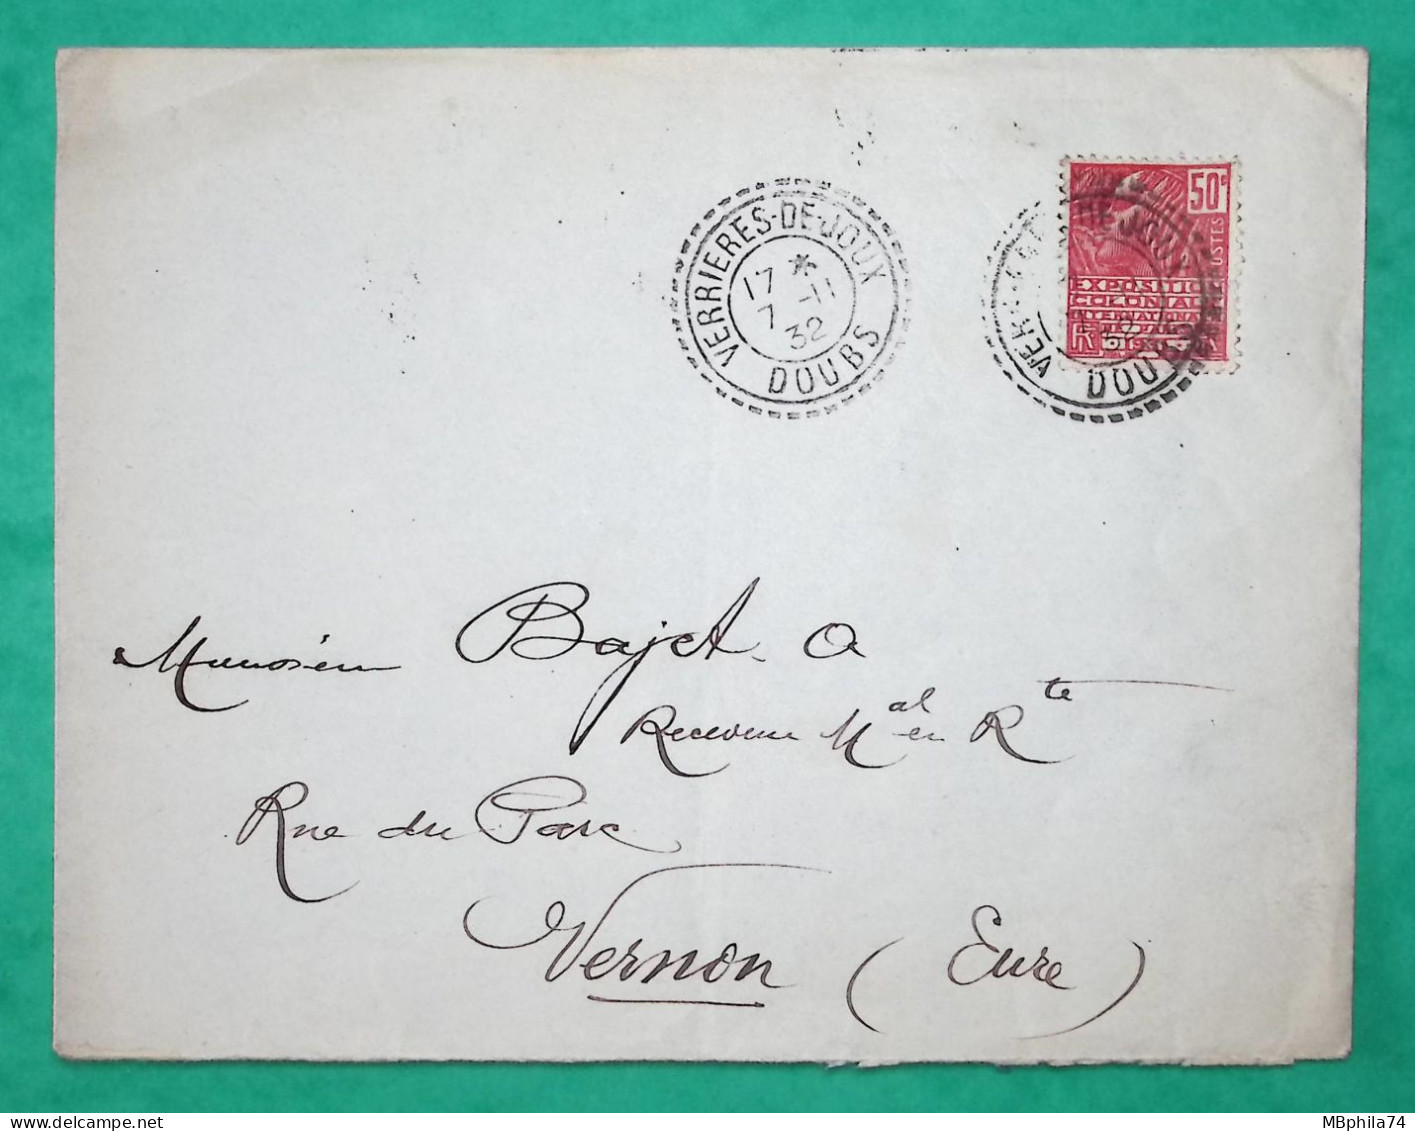 VERRIERES-DE-JOUX
17 *
7 -11
32
DOUBS
50c
POSTES
EXPOSITION
COLONIALE
INTERNATIONALE
DE JOUX
DOUBS
Monsieur Bajet. O
Receveur Mal en Rte
Rue du Parc
Vernon ( Eure )
MBphila74